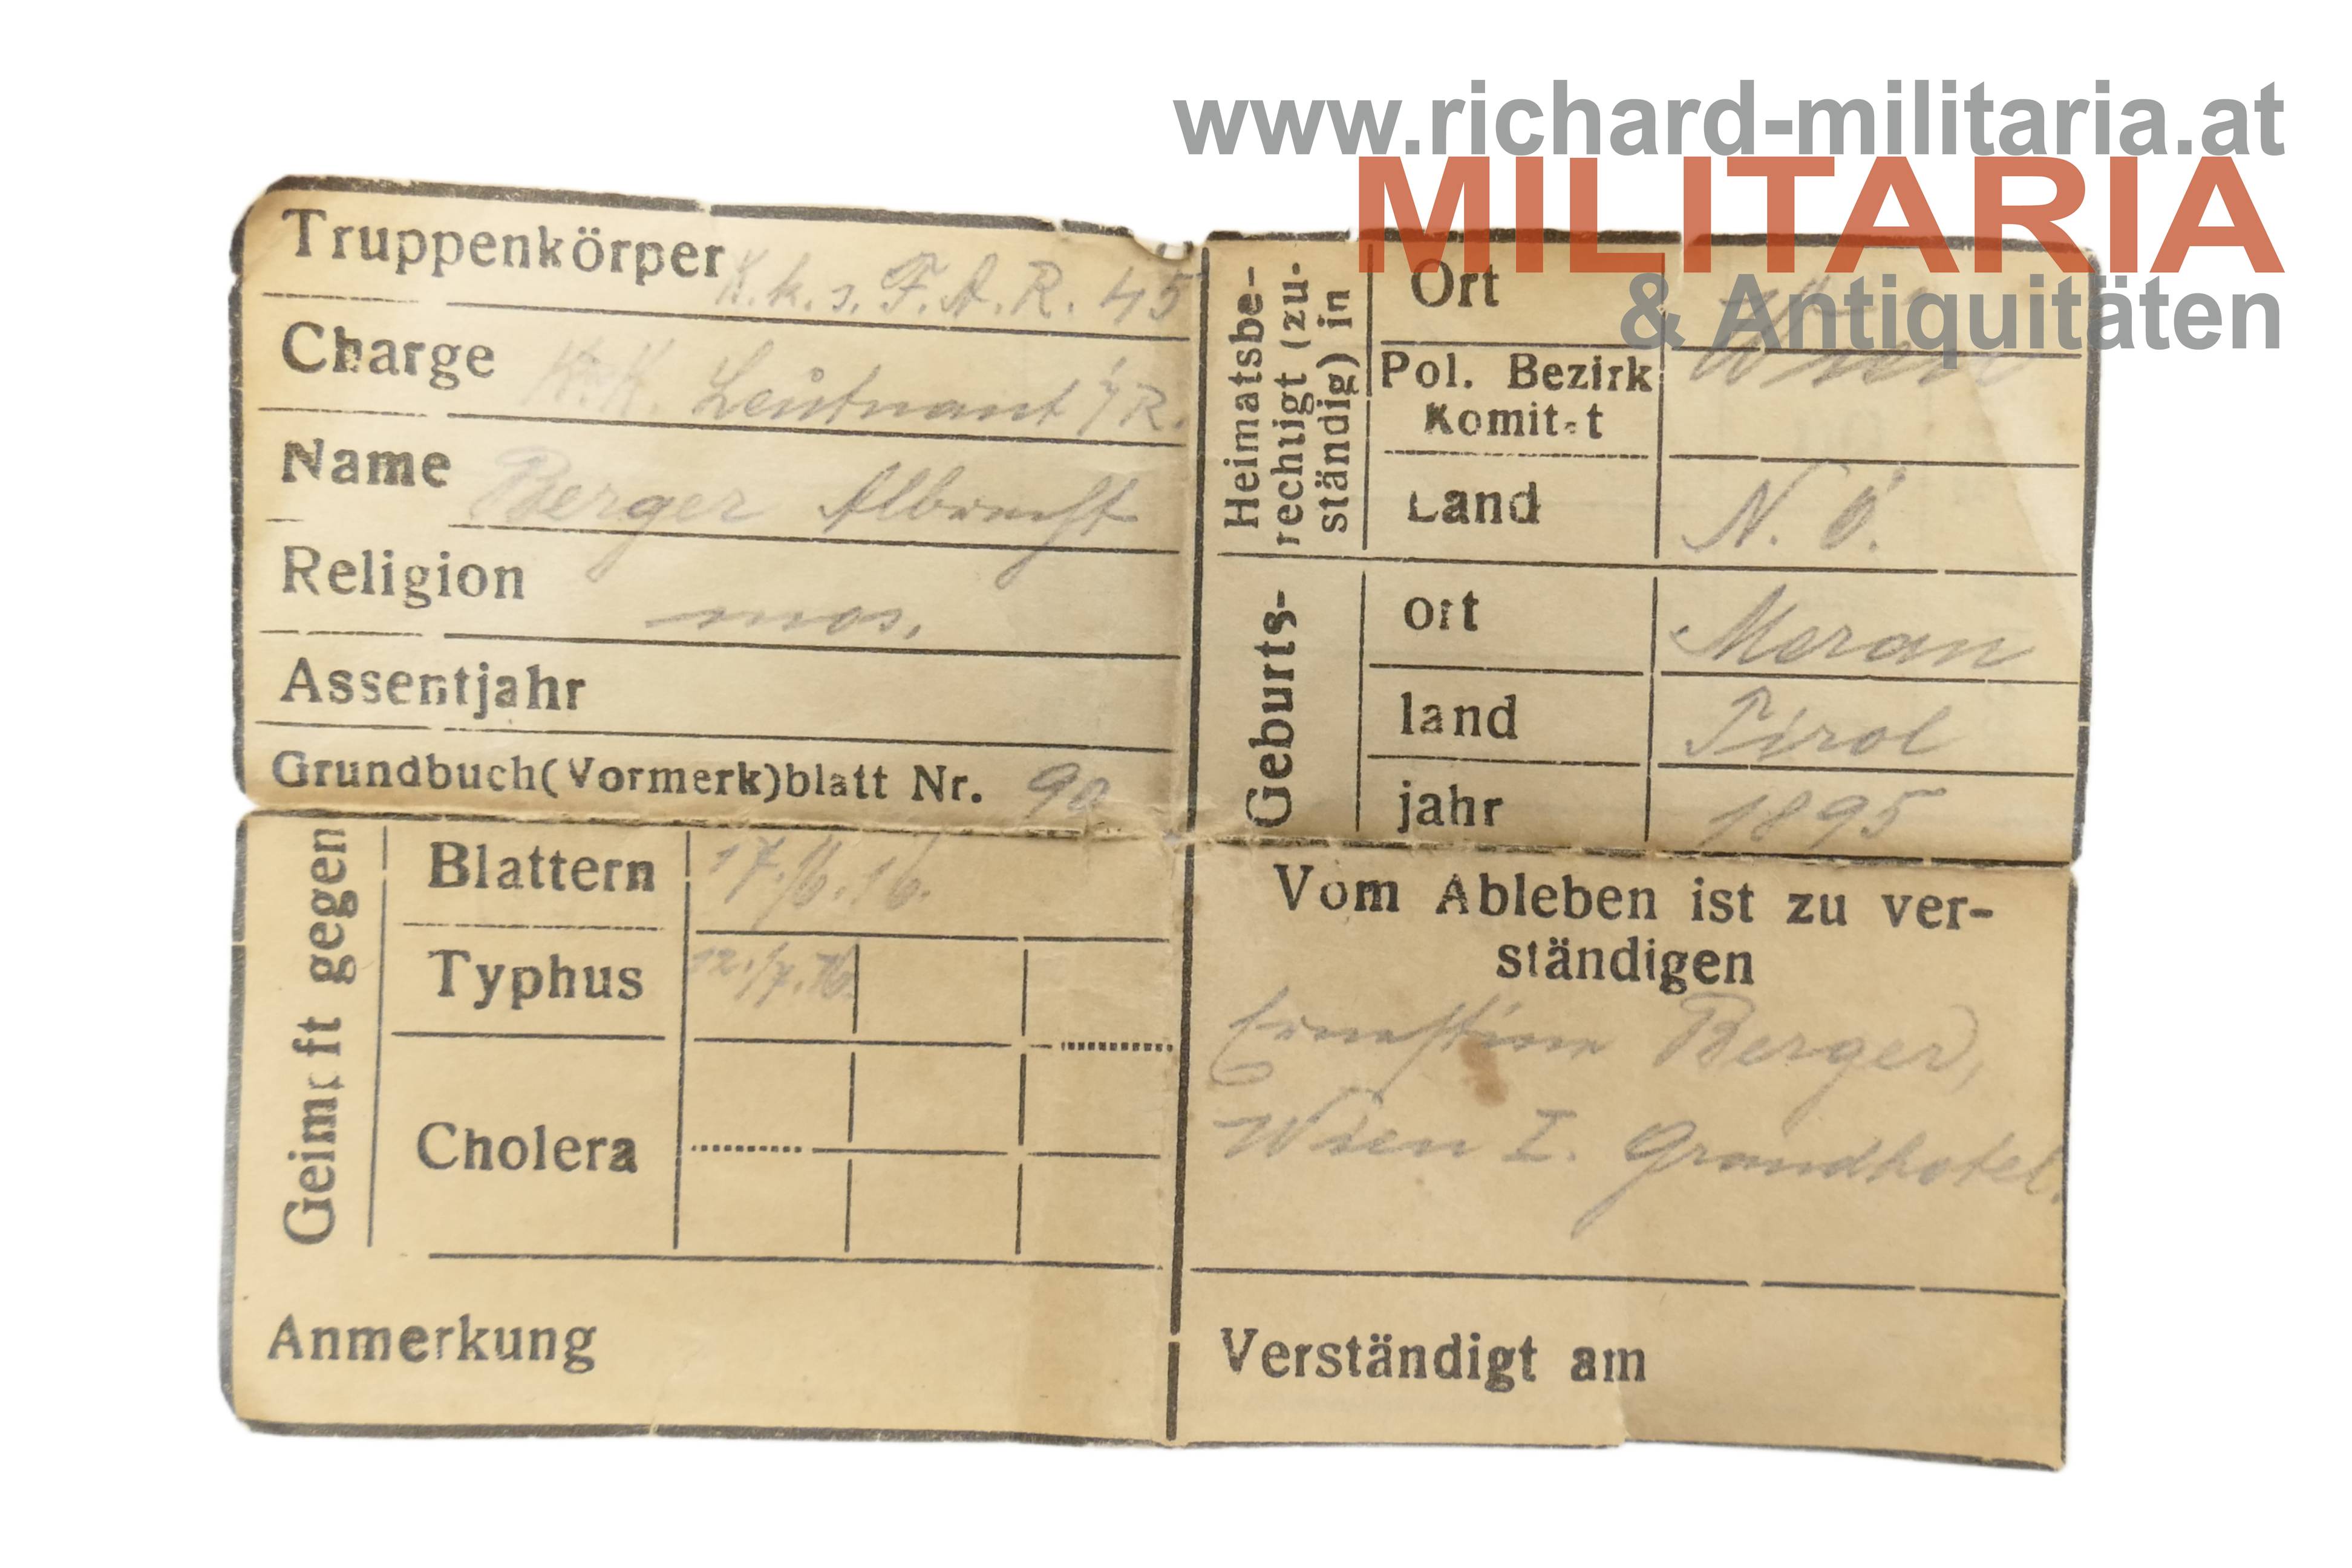 www.richard-militaria.at
MILITARIA
& Antiquitäten
Truppenkörper K.k.s.F.A.R. 45
Charge K.K. Leutnant i/R.
Name Berger Albrecht
Religion mos.
Assentjahr
Grundbuch(Vormerk)blatt Nr. 90
Heimatsbe-
rechtigt (zu-
ständig) in
Ort Wien
Pol. Bezirk
Komitat
Land N. Ö.
Geburts-
ort Meran
land Tirol
jahr 1895
Geimpft gegen
Blattern 17./6.16.
Typhus 12./7.16.
Cholera
Anmerkung
Vom Ableben ist zu ver-
ständigen
Ernestine Berger,
Wien I. Grandhotel.
Verständigt am